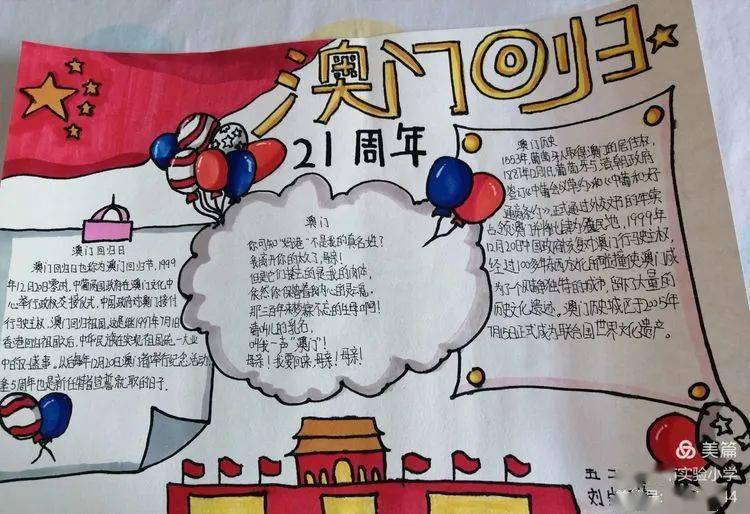 澳门回归
21周年
澳门回归日
澳门回归日也称为澳门回归节,1999
年12月20日零时,中葡两国政府在澳门文化中
心举行政权交接仪式,中国政府对澳门接付
行驶主权,澳门回归祖国,这是继1997年7月1日
香港回归祖国后,中华民族在实现祖国统一大业
中的又一盛事。从每年12月20日澳门都举行纪念活动,
逢5周年也是新任特首宣誓就职的日子。
澳门
你可知"妈港"不是我的真名姓?
我离开你的太久了,母亲!
但是它们掳去的是我的肉体,
依然你保管着我内心的灵魂。
那三百年来梦寐不忘的生母啊!
请叫儿的乳名,
叫我一声"澳门"!
母亲!我要回来,母亲!母亲!
澳门历史
1553年葡萄牙人取得澳门的居住权,
1887年12月1日,葡萄牙与清朝政府
签订《中葡会议草约》和《中葡和好
通商条约》,正式通过外交文书的
占领澳门并将此辟为殖民地,1999年
12月20日中国政府恢复对澳门行驶主权,
经过100多年西方文化的碰撞使澳门成
为了个风貌独特的城市,留下了大量的
历史文化遗迹。澳门历史城区于2005年
7月15日正式成为联合国世界文化遗产。
美篇
实验小学
五二
刘